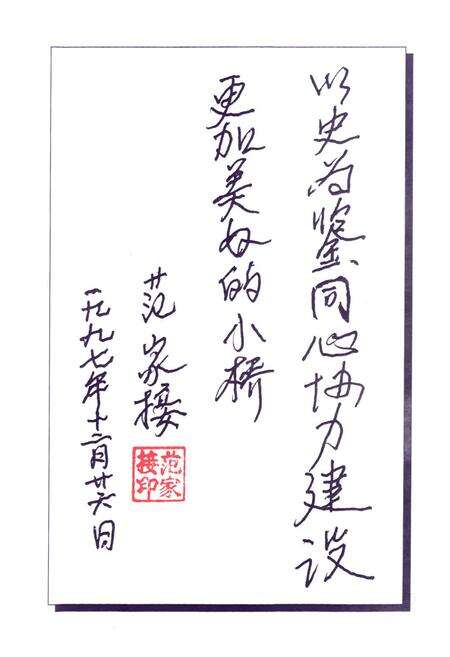 以史为鉴同心协力建设
更加美好的小桥
范家接
一九九七年十二月廿六日
范家接印